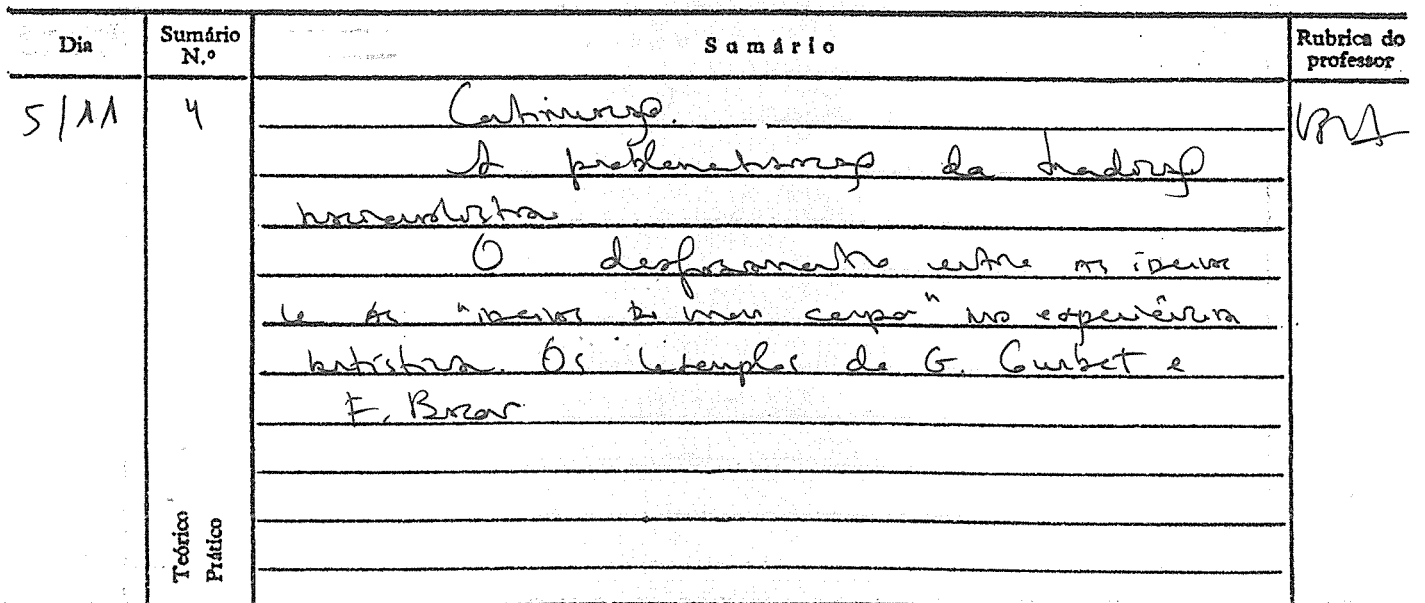 Dia
Sumário N.º
Sumário
Rubrica do professor
5/11
4
Continuação.
A problematização da tradição
O desfasamento entre as ideias
e as "ideias do meu corpo" na experiência
artística. Os exemplos de G. Courbet e
F.
Teórico
Prático